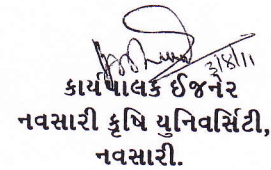 ૩/૪/૧૧
કાર્યપાલક ઈજનેર
નવસારી કૃષિ યુનિવર્સિટી,
નવસારી.